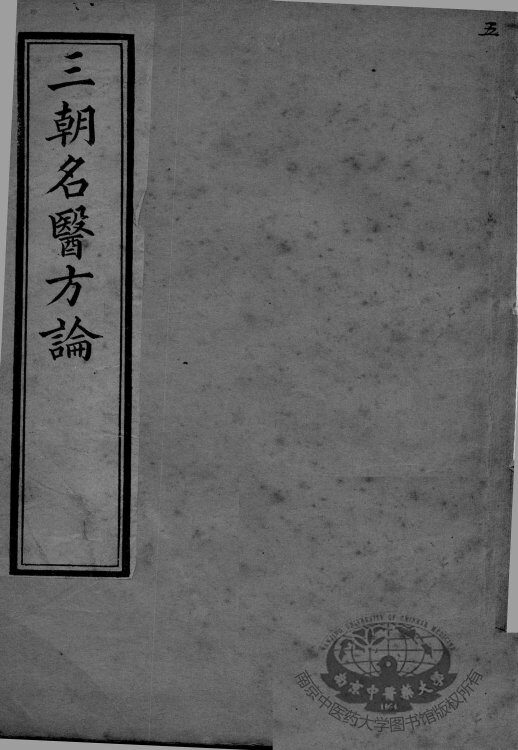 三朝名醫方論
五
NANJING UNIVERSITY OF CHINESE MEDICINE
南京中醫藥大學
1954
南京中医药大学图书馆版权所有